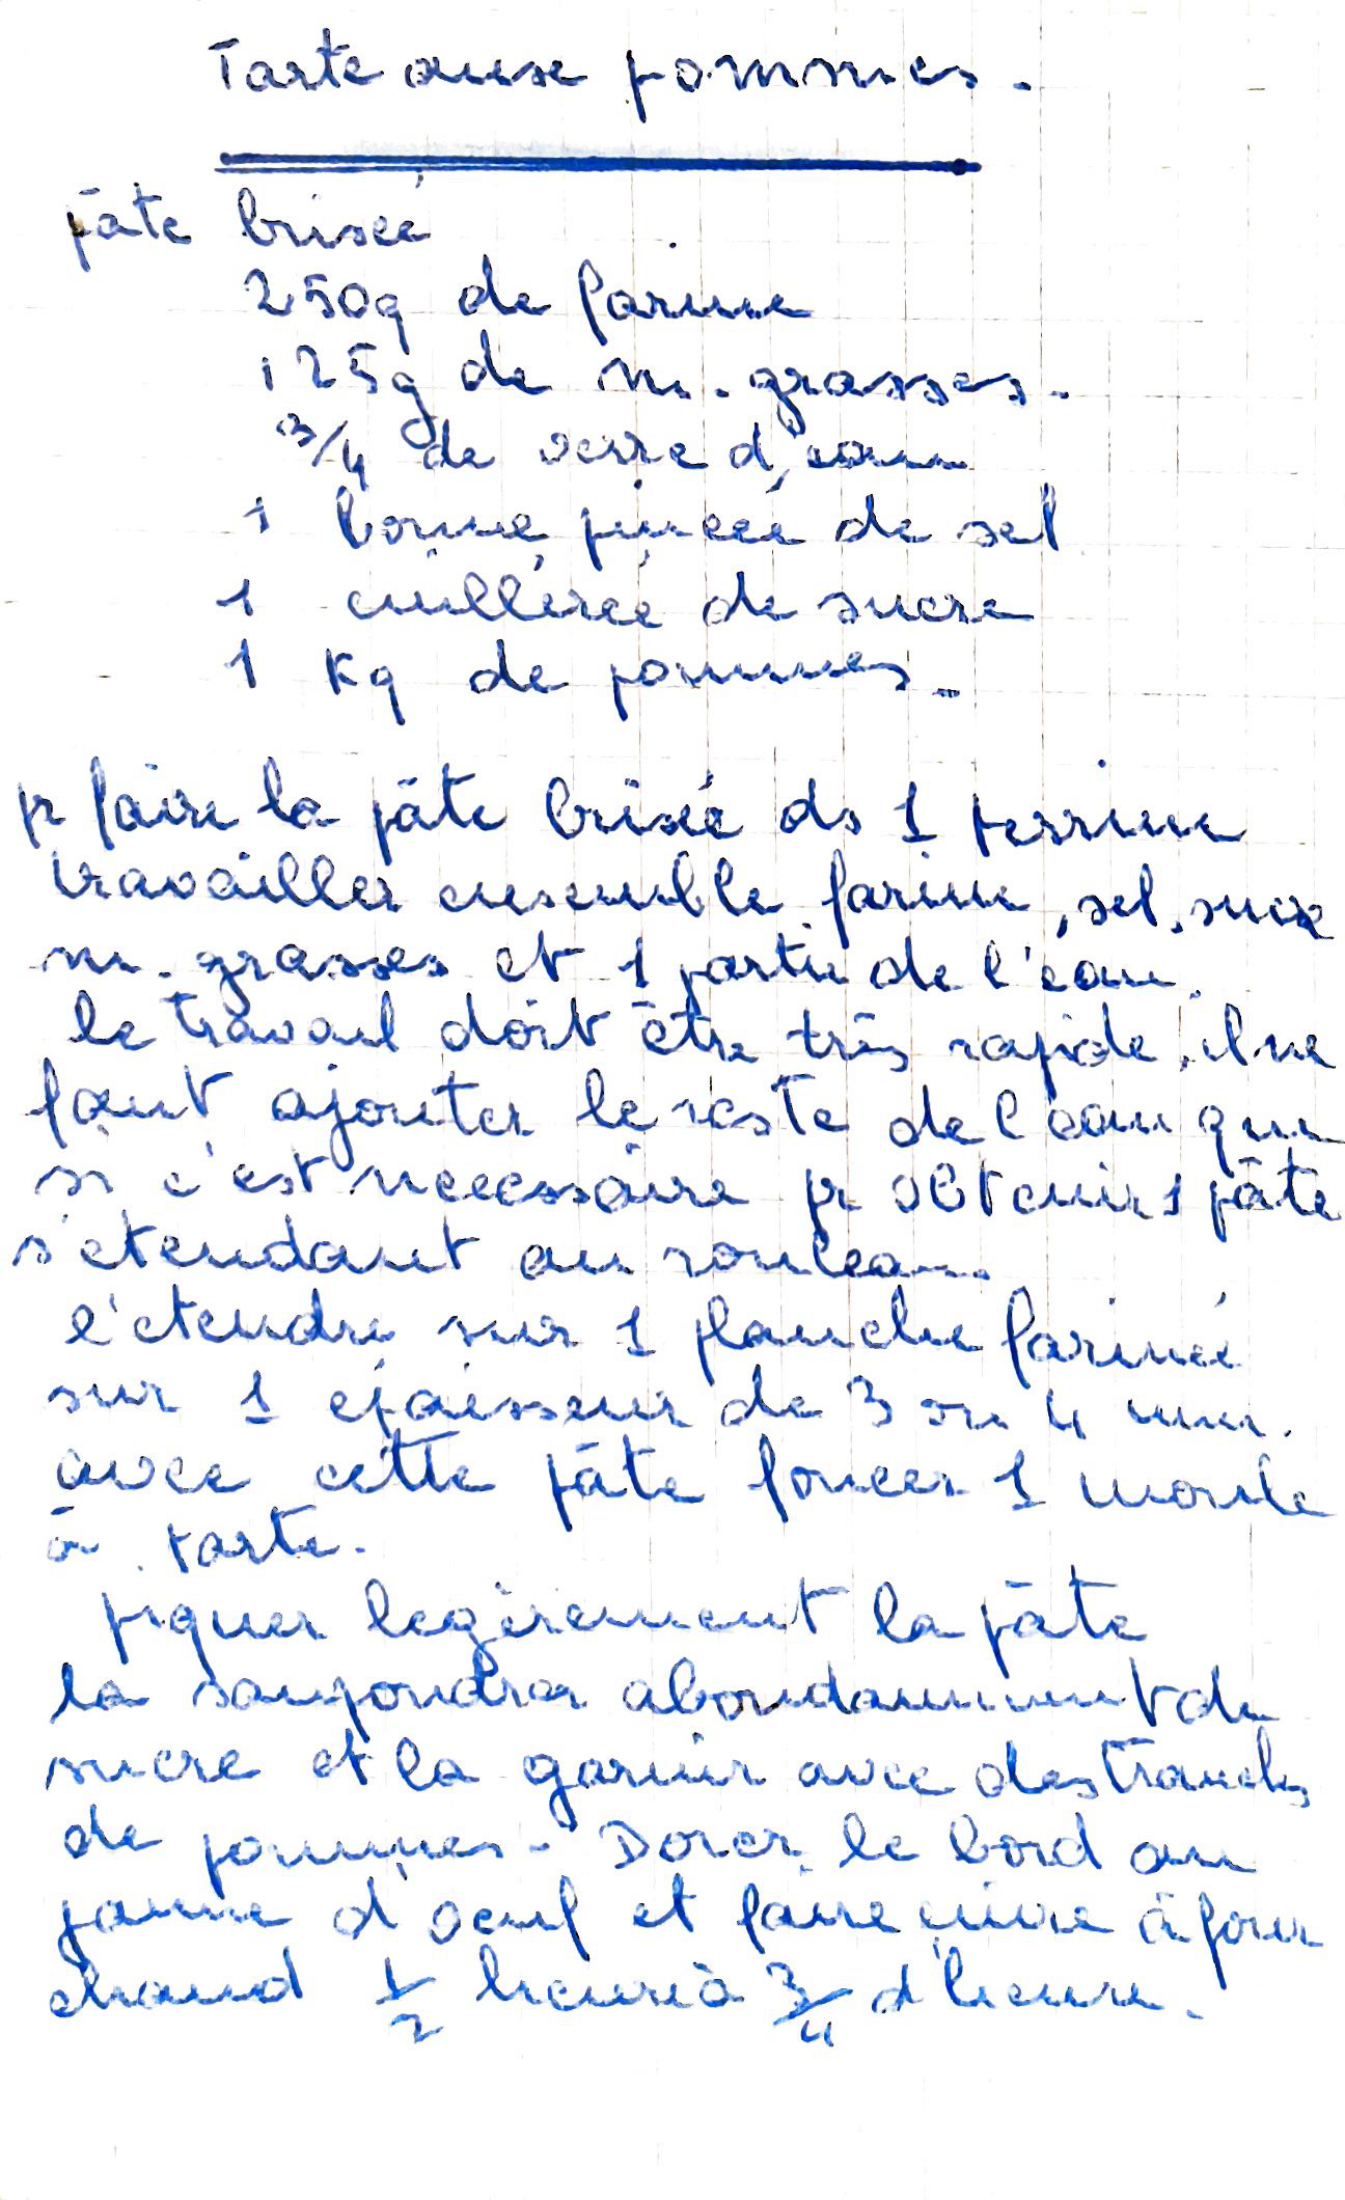 Tarte aux pommes.
pâte brisée
250g de farine
125g de m. grasses.
3/4 de verre d'eau
1 bonne pincée de sel
1 cuillerée de sucre
1 Kg de pommes.
pr faire la pâte brisée ds 1 terrine
travailler ensemble farine, sel, sucre
m. grasses et 1 partie de l'eau.
le travail doit être très rapide, il ne
faut ajouter le reste de l'eau que
si c'est necessaire pr obtenir 1 pâte
s'etendant au rouleau.
l'etendre sur 1 planche farinée
sur 1 epaisseur de 3 ou 4 mm.
avec cette pâte foncer 1 moule
à tarte.
piquer legèrement la pâte
la saupoudrer abondamment de
sucre et la garnir avec des tranches
de pommes - Dorer le bord au
jaune d'oeuf et faire cuire à four
chaud 1/2 heure à 3/4 d'heure.